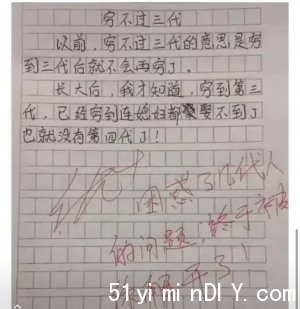 穷不过三代
以前，穷不过三代的意思是穷
到三代后就不会再穷了。
长大后，我才知道，穷到第三
代，已经穷到连媳妇都娶不到了
也就没有第四代了！
困惑了几代人
的问题，终于被
你解开了！
51yiminDIY.com